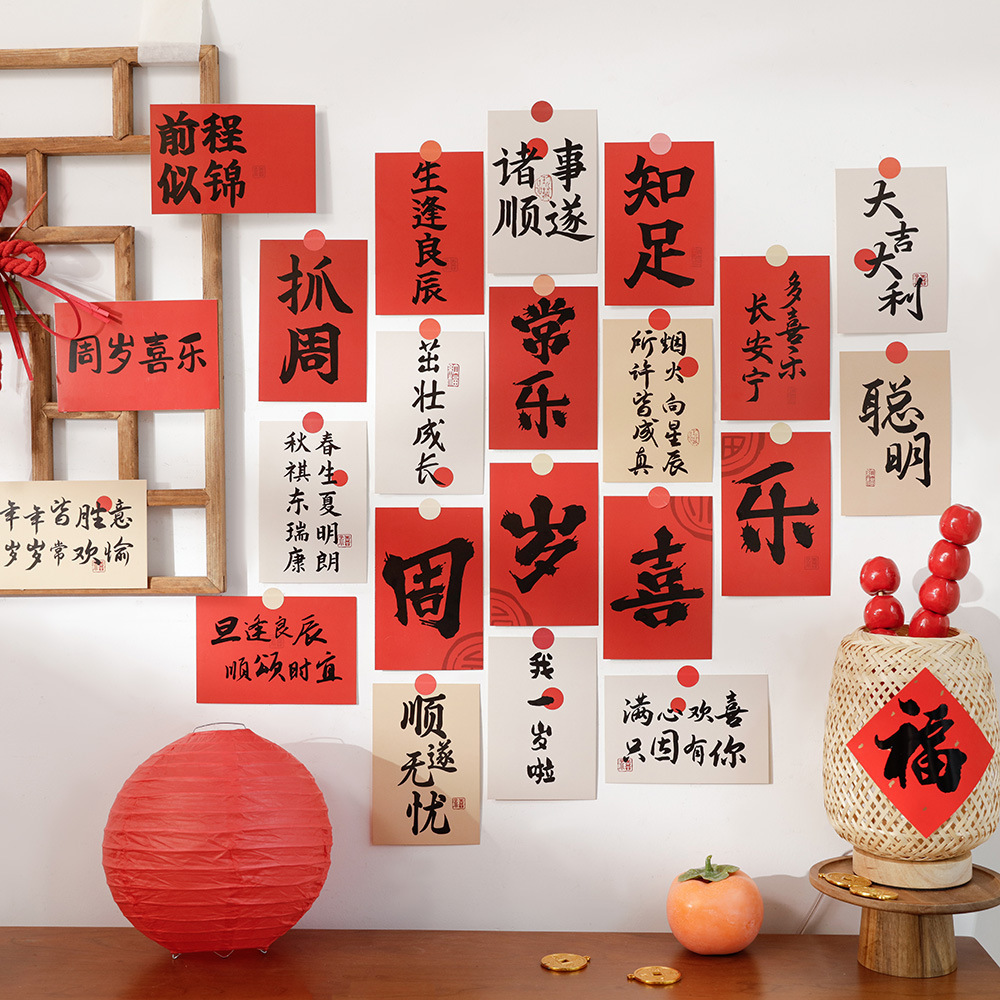 前程
似锦
生逢良辰
诸事
顺遂
知足
大吉
大利
抓周
多喜乐
长安宁
周岁喜乐
茁壮成长
常乐
烟火向星辰
所许皆成真
聪明
春生夏明朗
秋祺东瑞康
年年皆胜意
岁岁常欢愉
周
岁
喜
乐
旦逢良辰
顺颂时宜
顺遂
无忧
我一岁啦
满心欢喜
只因有你
福